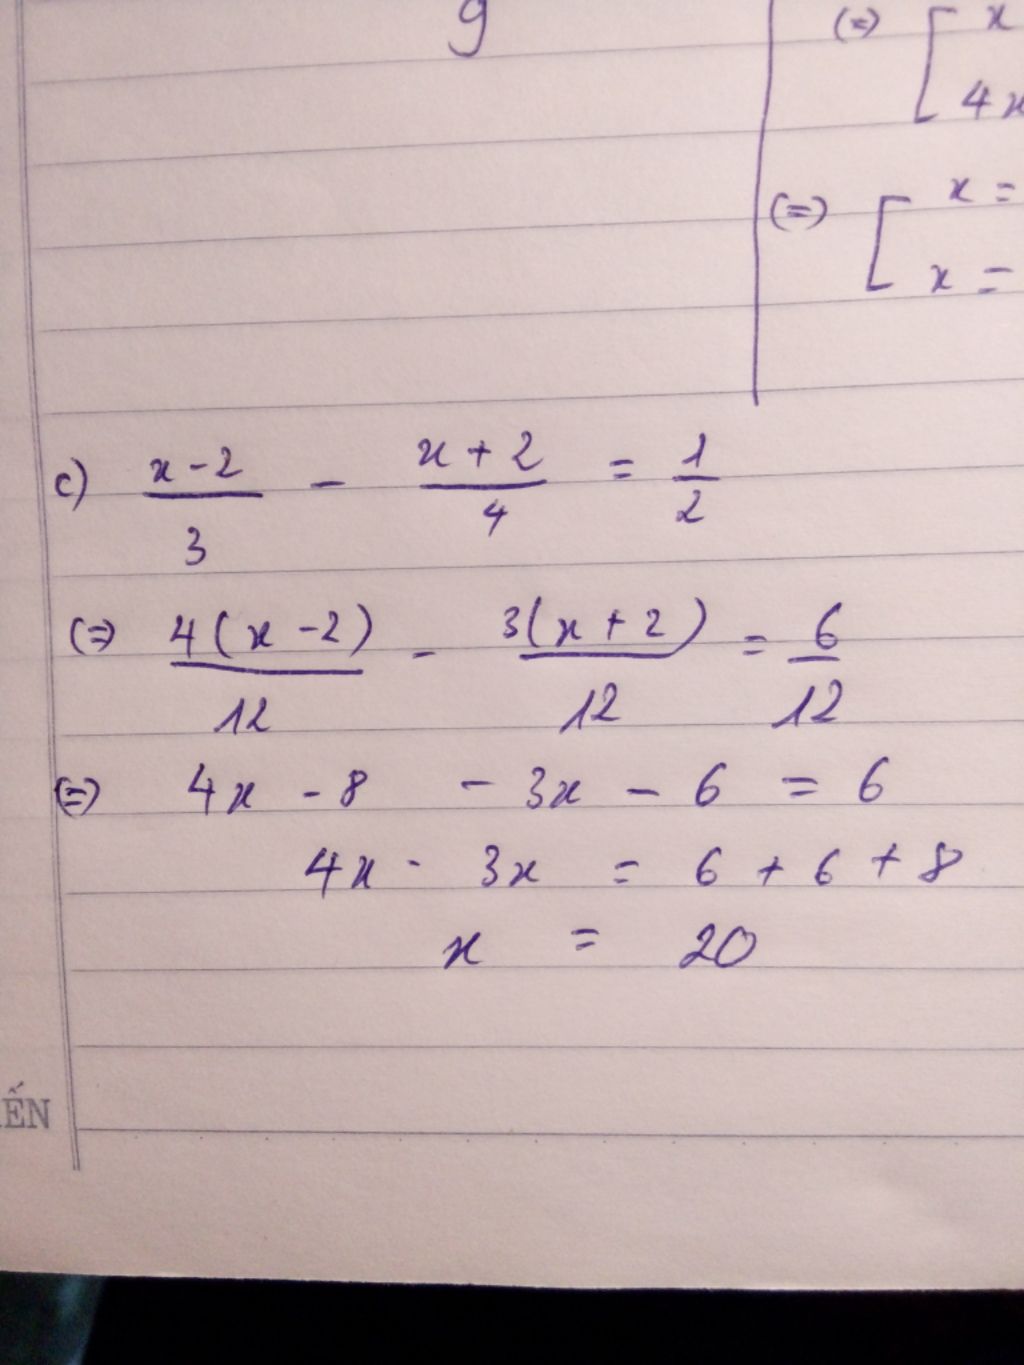 9
(=) [ x
4x
(=) [ x =
x =
c) (x-2)/3 - (x+2)/4 = 1/2
(=) 4(x-2)/12 - 3(x+2)/12 = 6/12
(=) 4x - 8 - 3x - 6 = 6
4x - 3x = 6 + 6 + 8
x = 20
ẾN